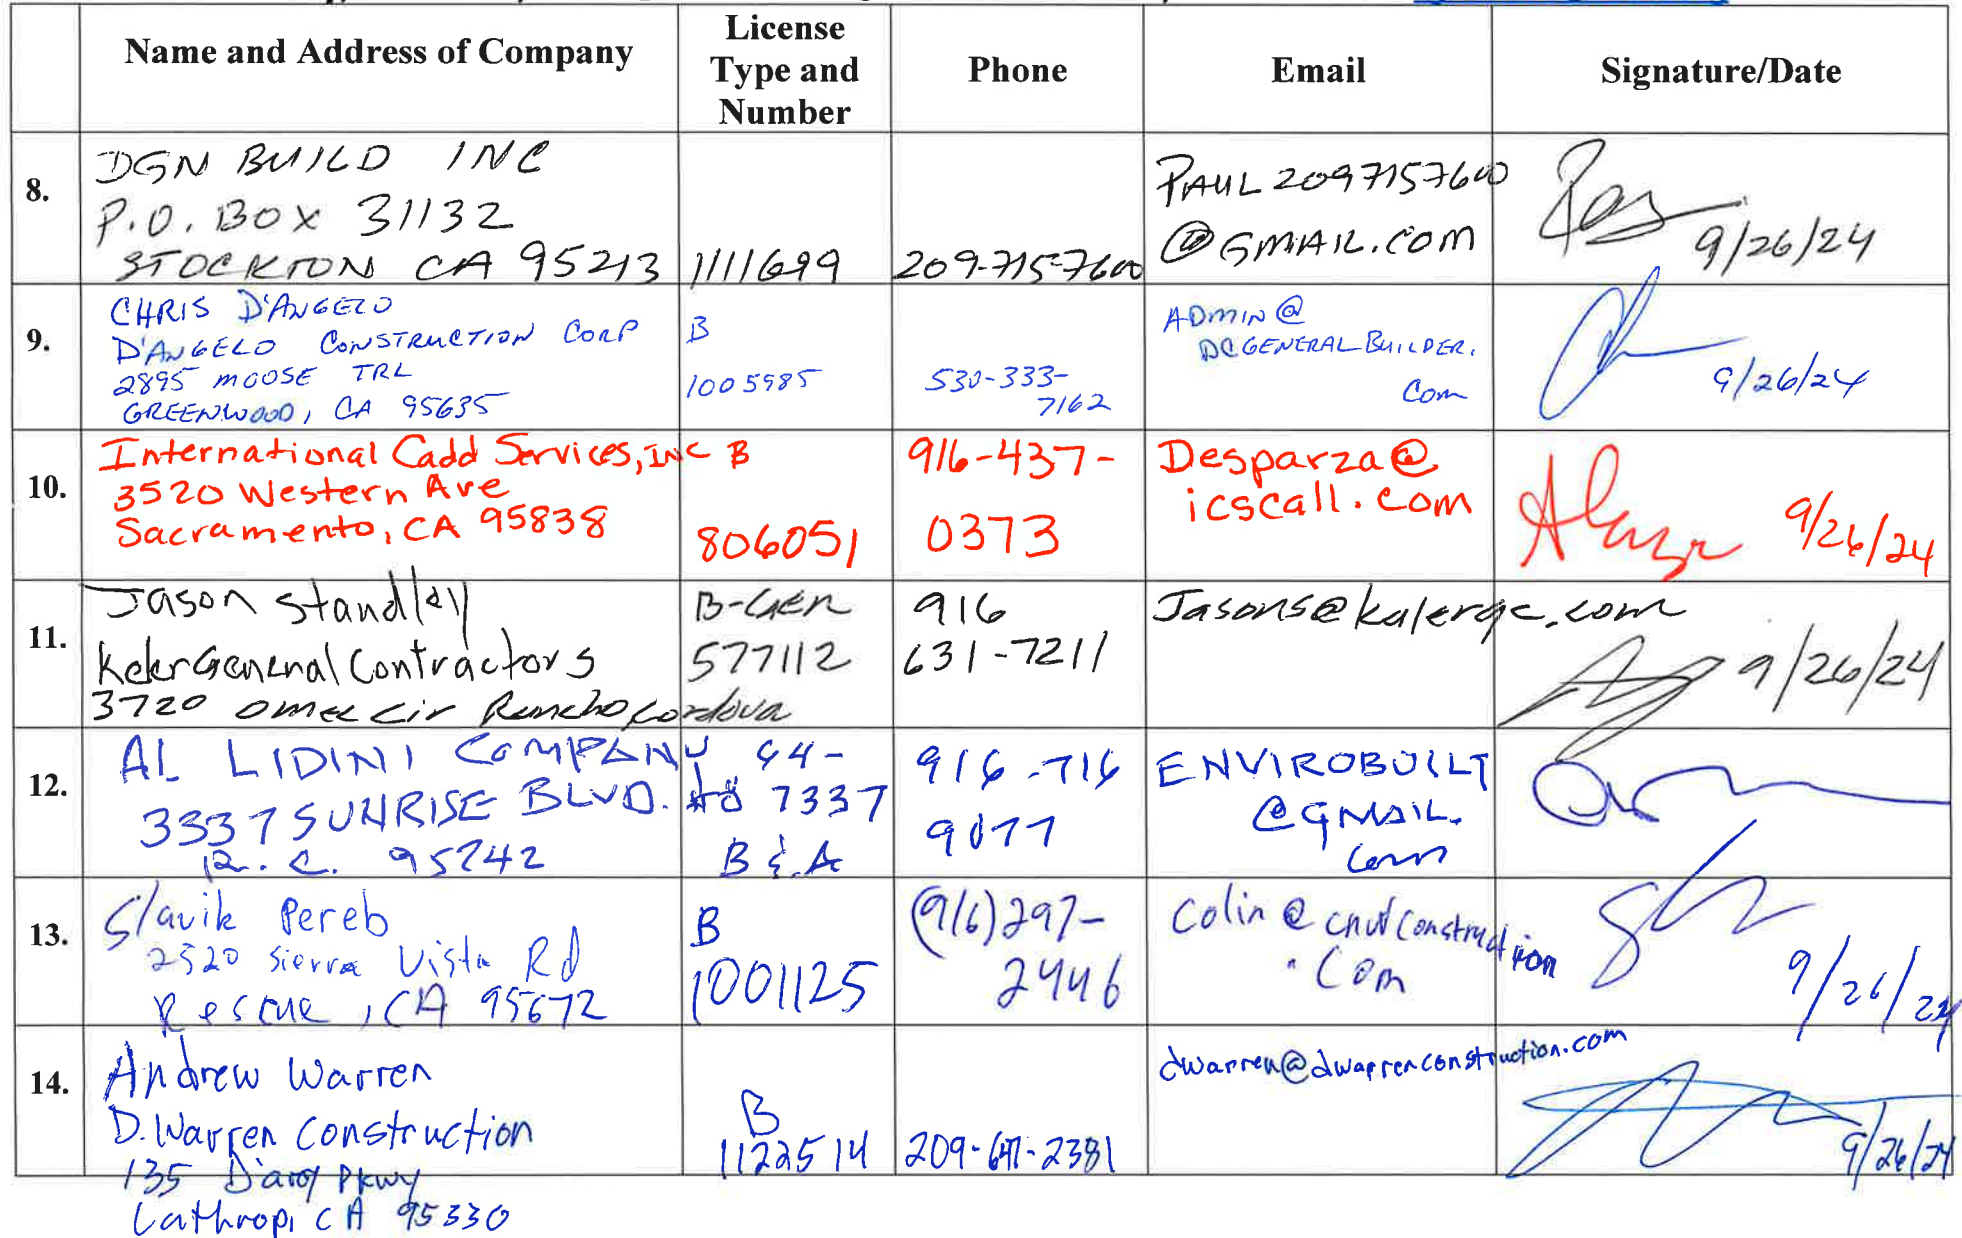 Name and Address of Company
License Type and Number
Phone
Email
Signature/Date
8.
DGN BUILD INC
P.O. BOX 31132
STOCKTON CA 95213
1111699
209-715-7600
PAUL2097157600
@GMAIL.COM
9/26/24
9.
CHRIS D'ANGELO
D'ANGELO CONSTRUCTION CORP
2895 MOOSE TRL
GREENWOOD, CA 95635
B
1005985
530-333-
7162
ADMIN@
DCGENERALBUILDER.
Com
9/26/24
10.
International Cadd Services, INC
3520 Western Ave
Sacramento, CA 95838
B
806051
916-437-
0373
Desparza@
icscall.com
9/26/24
11.
Jason Standley
General Contractors
3720 Omec Cir Rancho Cordova
B-Gen
577112
916
631-7211
Jasons@kalergc.com
9/26/24
12.
AL LIDINI COMPANY
3337 SUNRISE BLVD.
R.C. 95742
7337
B & A
916-716
9077
ENVIROBUILT
@GMAIL.
com
13.
Slavik Pereb
2520 Sierra Vista Rd
Rescue, CA 95672
B
1001125
(916)297-
2446
Colin@
.Com
9/26/24
14.
Andrew Warren
D.Warren Construction
135 D'arcy Pkwy
Lathrop, CA 95330
B
1122514
209-647-2381
dwarren@dwarrenconstruction.com
9/26/24